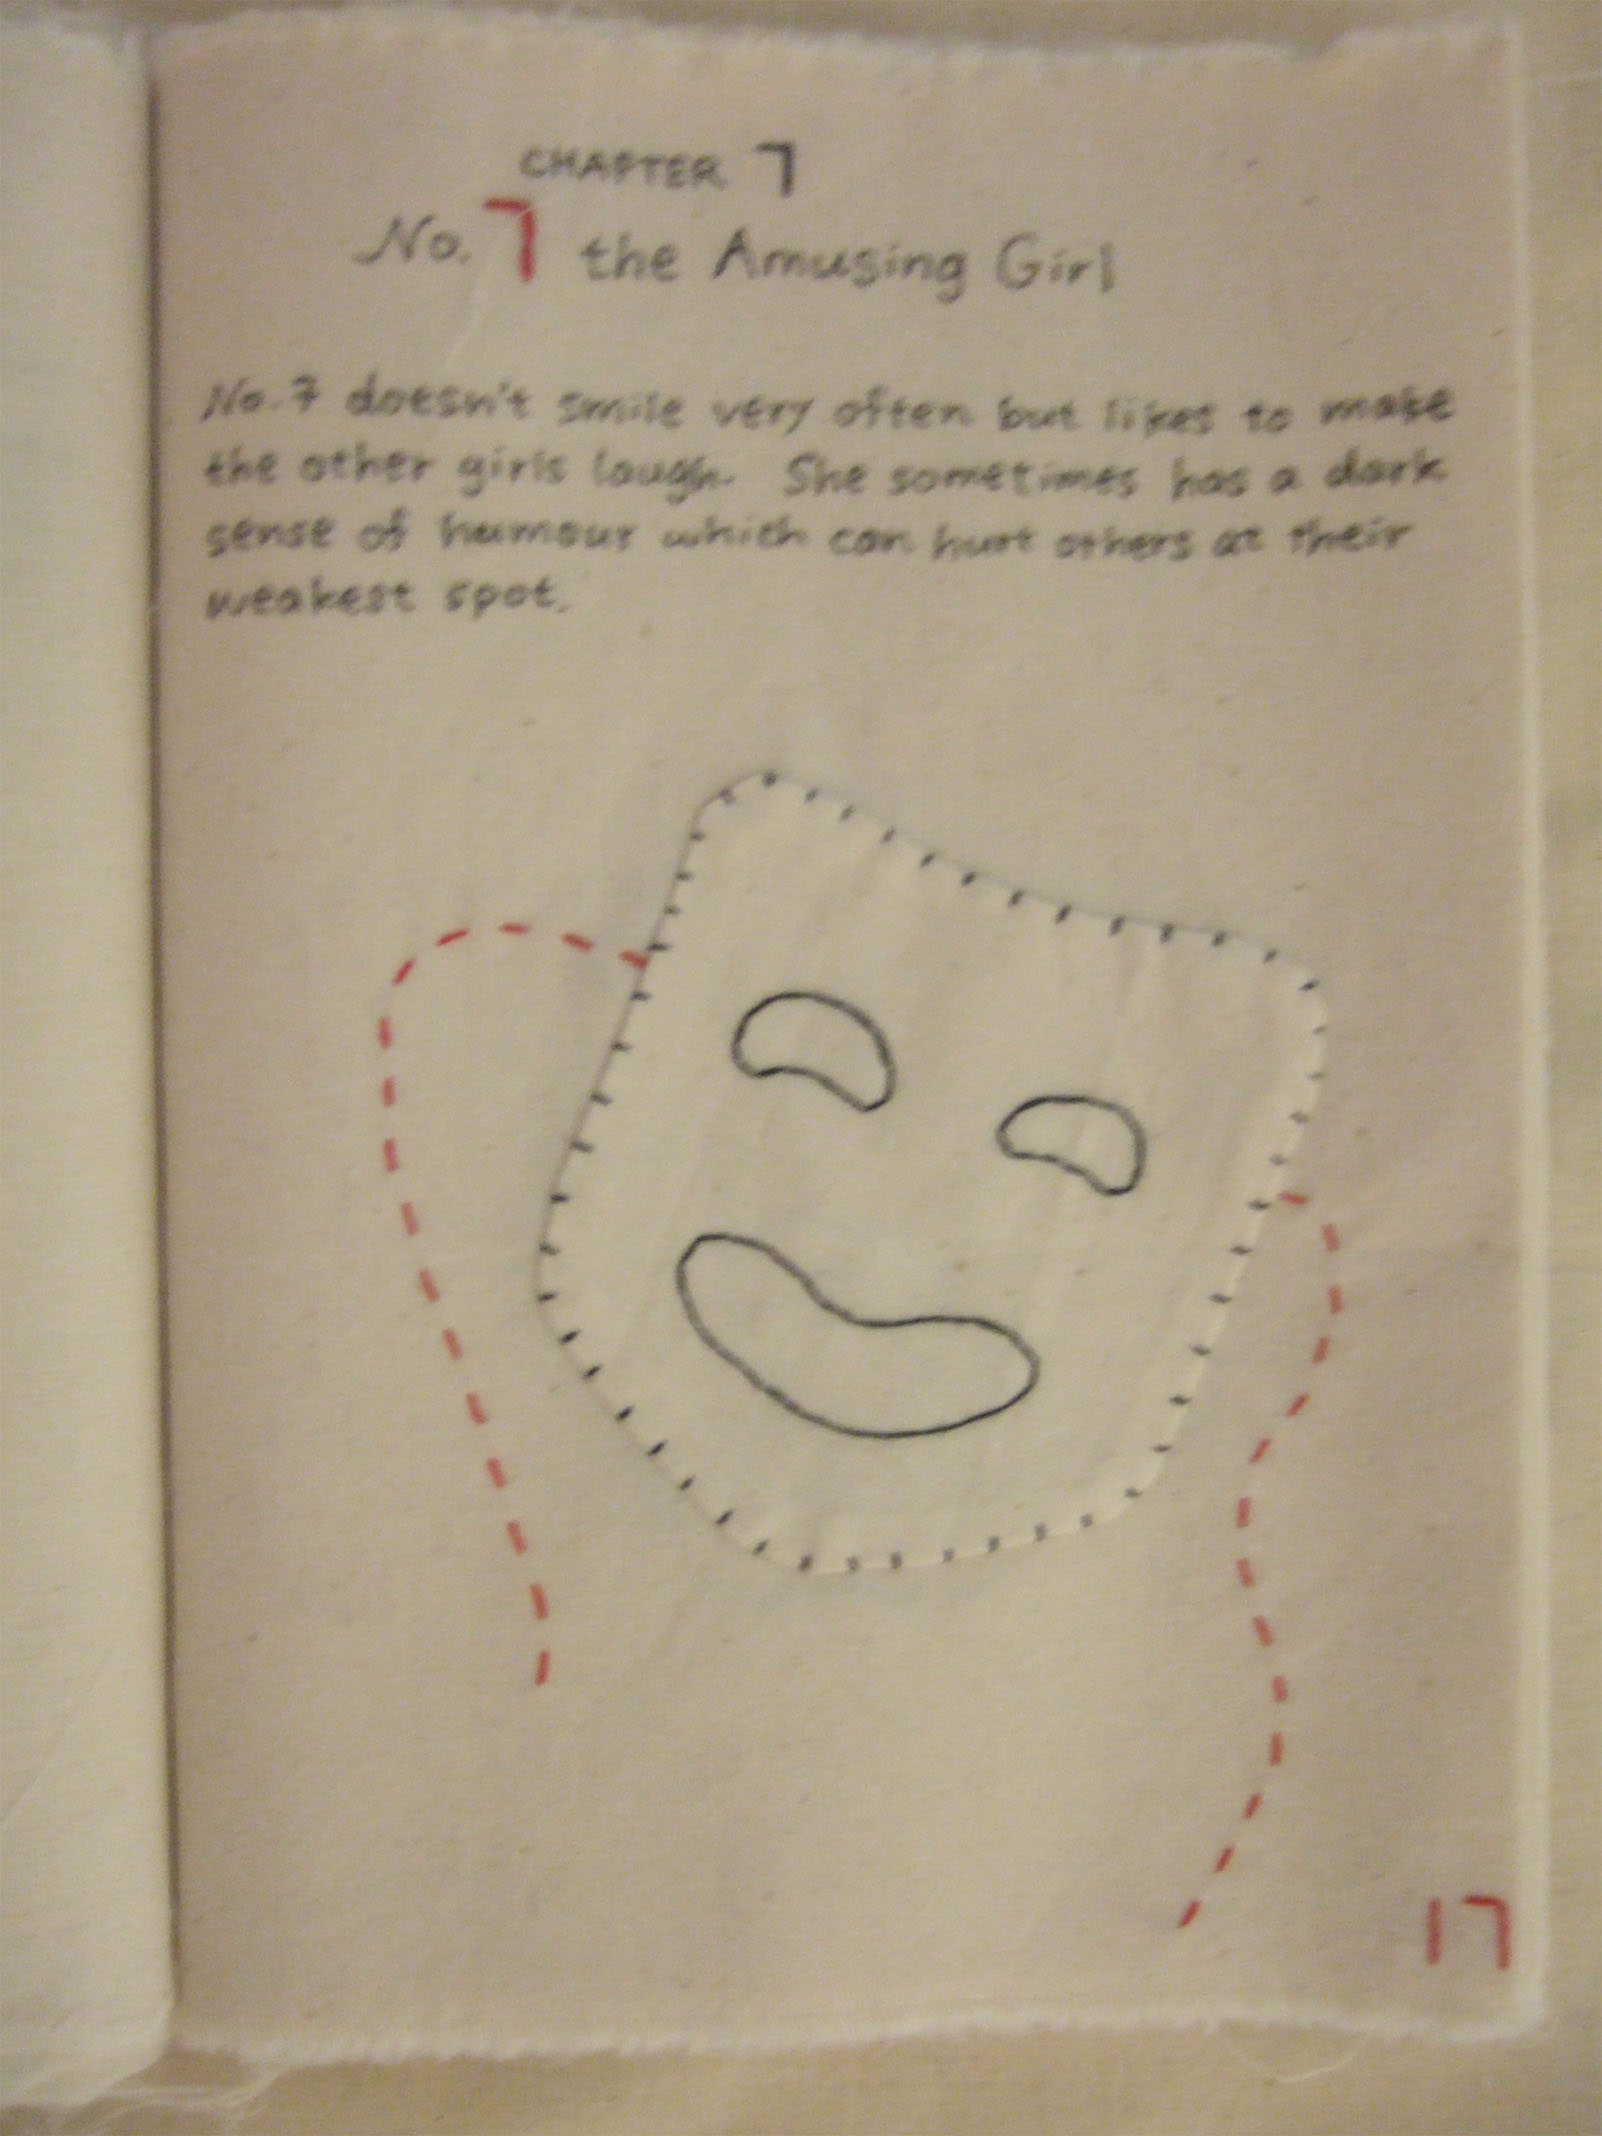 CHAPTER 7
No. 7 the Amusing Girl
No. 7 doesn't smile very often but likes to make
the other girls laugh. She sometimes has a dark
sense of humour which can hurt others at their
weakest spot.
17